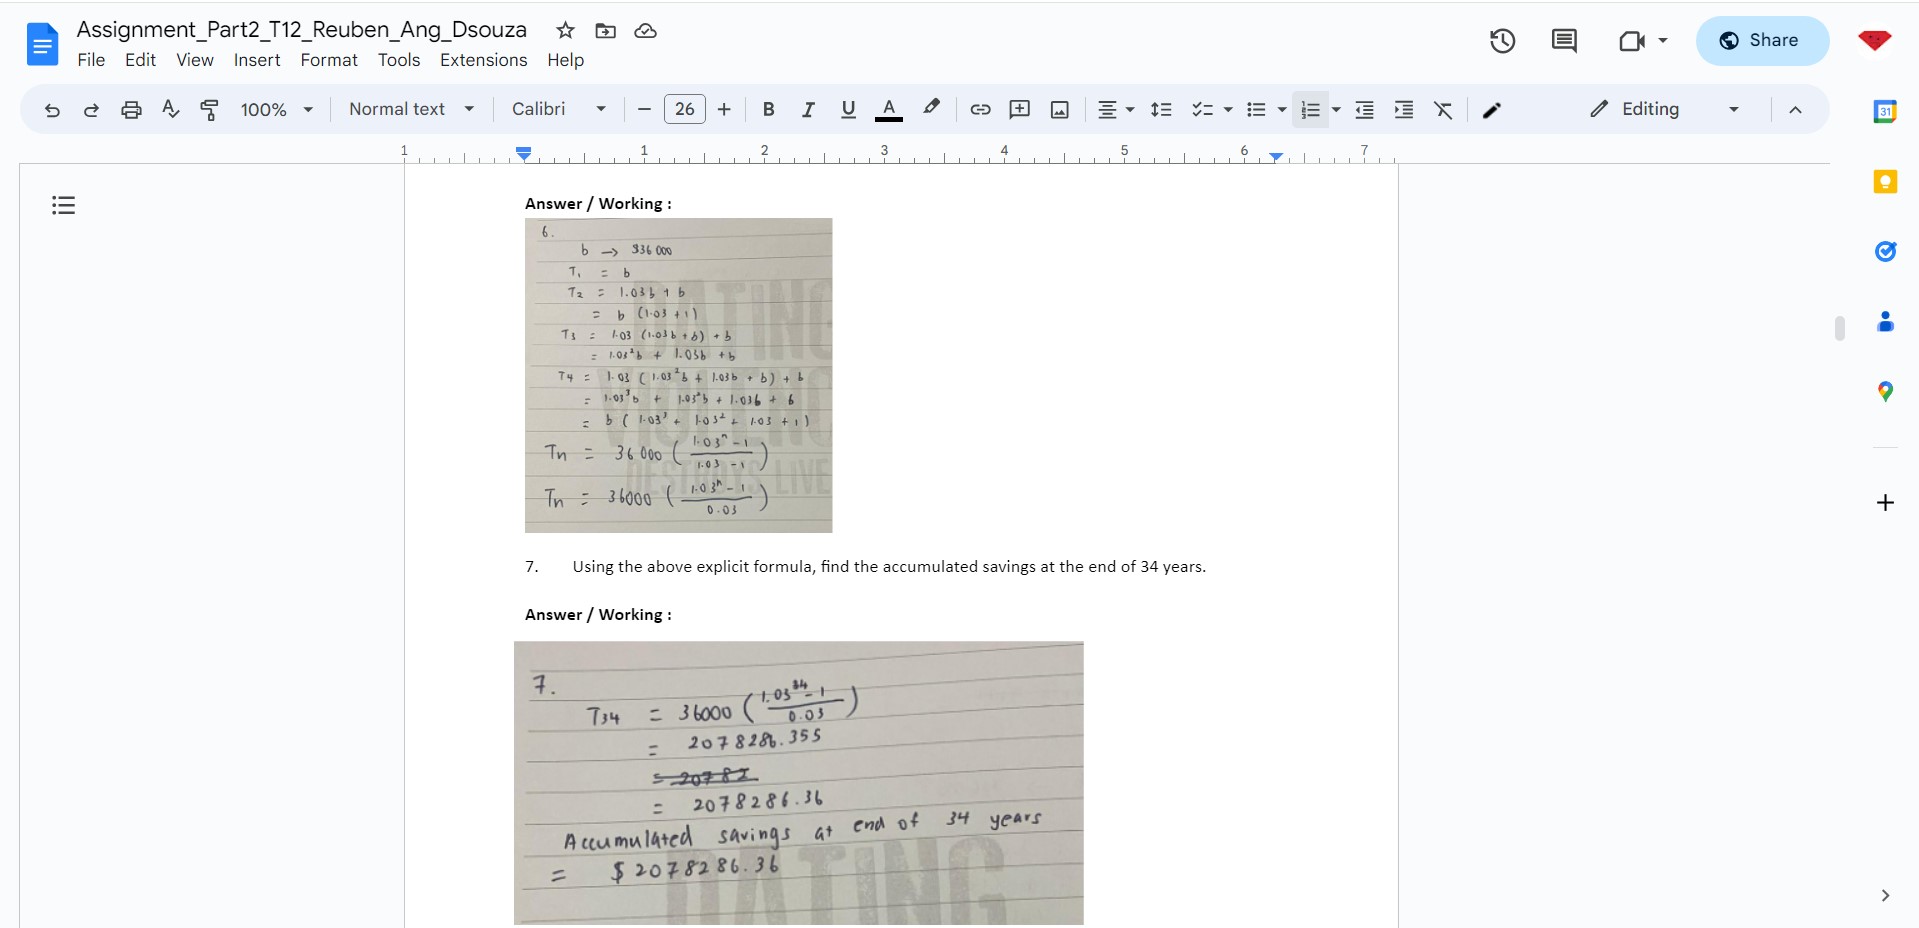 Assignment_Part2_T12_Reuben_Ang_Dsouza
File Edit View Insert Format Tools Extensions Help
Share
100% Normal text Calibri 26 B I U A Editing
31
1 1 2 3 4 5 6 7
Answer / Working :
6.
b → $36 000
T1 = b
T2 = 1.03b + b
= b (1.03 + 1)
T3 = 1.03 (1.03b + b) + b
= 1.03²b + 1.03b + b
T4 = 1.03 (1.03²b + 1.03b + b) + b
= 1.03³b + 1.03²b + 1.03b + b
= b (1.03³ + 1.03² + 1.03 + 1)
Tn = 36 000 (1.03ⁿ - 1 / 1.03 - 1)
Tn = 36000 (1.03ⁿ - 1 / 0.03)
DATING
VIOLENC
DESTROYS LIVE
7. Using the above explicit formula, find the accumulated savings at the end of 34 years.
Answer / Working :
7.
T34 = 36000 (1.03³⁴ - 1 / 0.03)
= 2078286.355
= 20782
= 2078286.36
Accumulated savings at end of 34 years
= $2078286.36
DATING